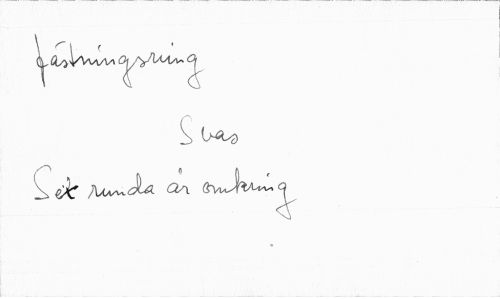 fästningsring
Svas
Sex runda år omkring